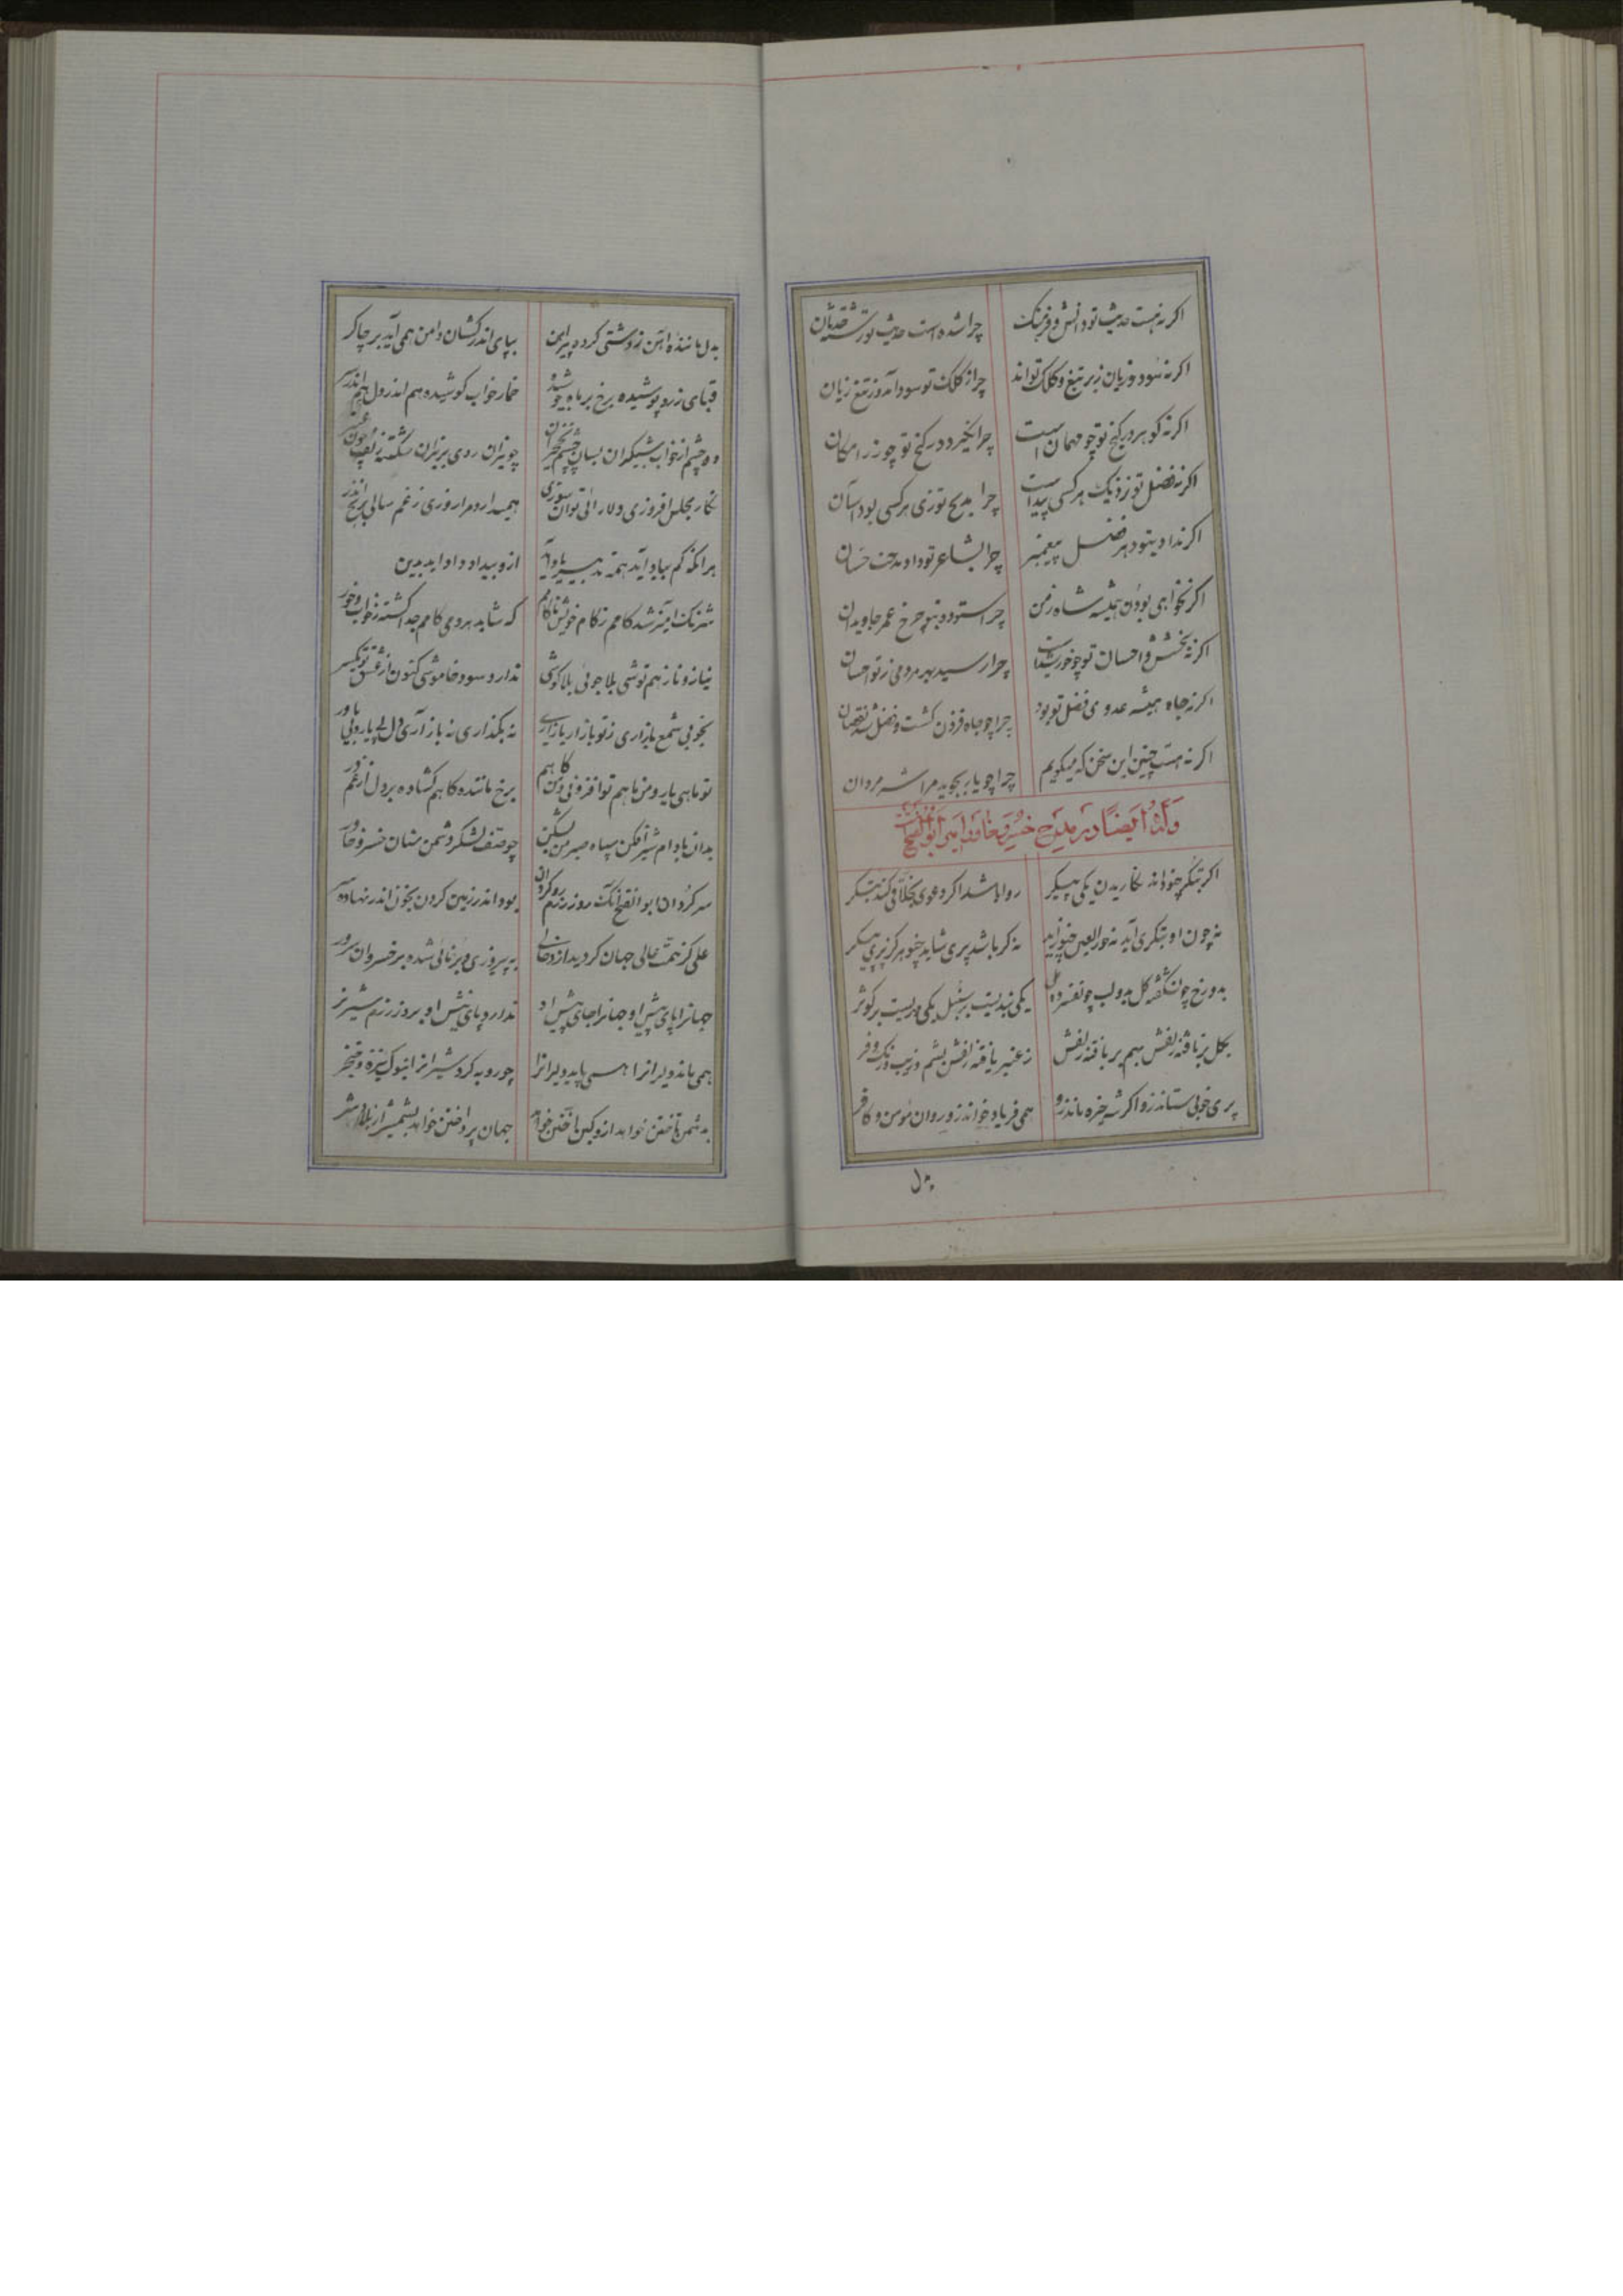 اگر نه هست حدیث تو دانش و فرهنگ چرا شده است حدیث تو
اگر نه سود و زیان زیر تیغ و کلک تواند چرا ز کلک تو سود آمد و ز تیغ زیان
اگر نه گوهر در گنج تو چو مهمان است چرا نگیرد در گنج تو چو زر امکان
اگر نه فضل تو نزدیک هر کسی پیداست چرا مدیح تو زی هر کسی بود آسان
اگر نداد بتو دهر فضل پیغمبر چرا بشاعر تو داد مدحت حسان
اگر نخواهی بودن همیشه شاه زمن چرا ستوده بتو چرخ عمر جاویدان
اگر نه بخشش و احسان تو چو خورشید است چرا رسید بهر مردمی ز تو احسان
اگر نه جاه همیشه عدوی فضل تو بود چرا چو جاه فزون گشت فضل شد نقصان
اگر نه هست چنین این سخن که میگویم چرا چو یار بجوید مرا شه مردان
وله ایضا در مدح خسرو آفاق امیر ابوالفتح
اگر بتگر چنو داند نگاریدن یکی پیکر روا باشد اگر دعوی بخلاقی کند بتگر
نه چون او بتگری آید نه حورالعین چنو زاید نه گر باشد پری شاید چنو هرگز پری پیکر
بدو رخ چون شکفته گل بدو لب چون فسرده مل یکی بندیست بر سنبل یکی مهریست بر کوثر
بگل بر تافته زلفش بهم بر بافته زلفش ز عنبر یافته زلفش بشم و زیب و رنگ و فر
پری خوبی ستاند زو اگر شه خیره ماند زو همی فریاد خواند زو روان مؤمن و کافر
بدل
بدل ماننده آهن ز وشتی کرده پیراهن بپای اندر کشان دامن همی آید بر چاکر
قبای زرد پوشیده برخ بر ماه جوشیده خمار خواب کوشیده هم اندر دل هم اندر سر
دو چشم از خواب شبگیران بسان چشم نخجیران چو نیران روی بر نیران شکفته زلف چون عنبر
نگار مجلس افروزی و لار ائی توان سوزی همیدارد مرا روزی ز غم سالی برنج اندر
هر آنکه کم بیاد آید همه تدبیر باد آید ازو بیداد داد آید بدین
شرنگ آمیز شد کامم ز کام خویش ناکامم که شاید بردی کامم جدا گشته ز خواب و خور
نیاز و ناز هم توشی بلا جوئی بلا کوشی ندارد سود خاموشی کنون از عشق تو یکسر
بخوبی شمع بازاری ز تو بازار با زاری نه بگذاری نه باز آری دل بی یار و بی یاور
تو ماهی یار و من ماهم تو افزونی و من کاهم برخ ماننده کاهم گشاده بر دل از غم در
بدان بادام شیر افکن سپاه صبر من بشکن چو صف لشکر دشمن سنان خسرو خاور
سر گردان ابوالفتح آنک روز رزم رو گردان بود اندر زمین گردن بخون اندر نهاده سر
علی کز همت عالی جهان کرد از بدی خالی به پیروزی و برنائی شده بر خسروان سرور
جهانرا پای پیش او جهانرا جای پیش او ندارد پای پیش او بروز رزم شیر نر
همی ماند دلیرانرا همی پاید دلیرانرا چو روبه کرد شیرانرا بنوک نیزه و خنجر
بدشمن تاختن خواهد ازو کین آختن خواهد جهان پرداختن خواهد بشمشیر از بلا و شر